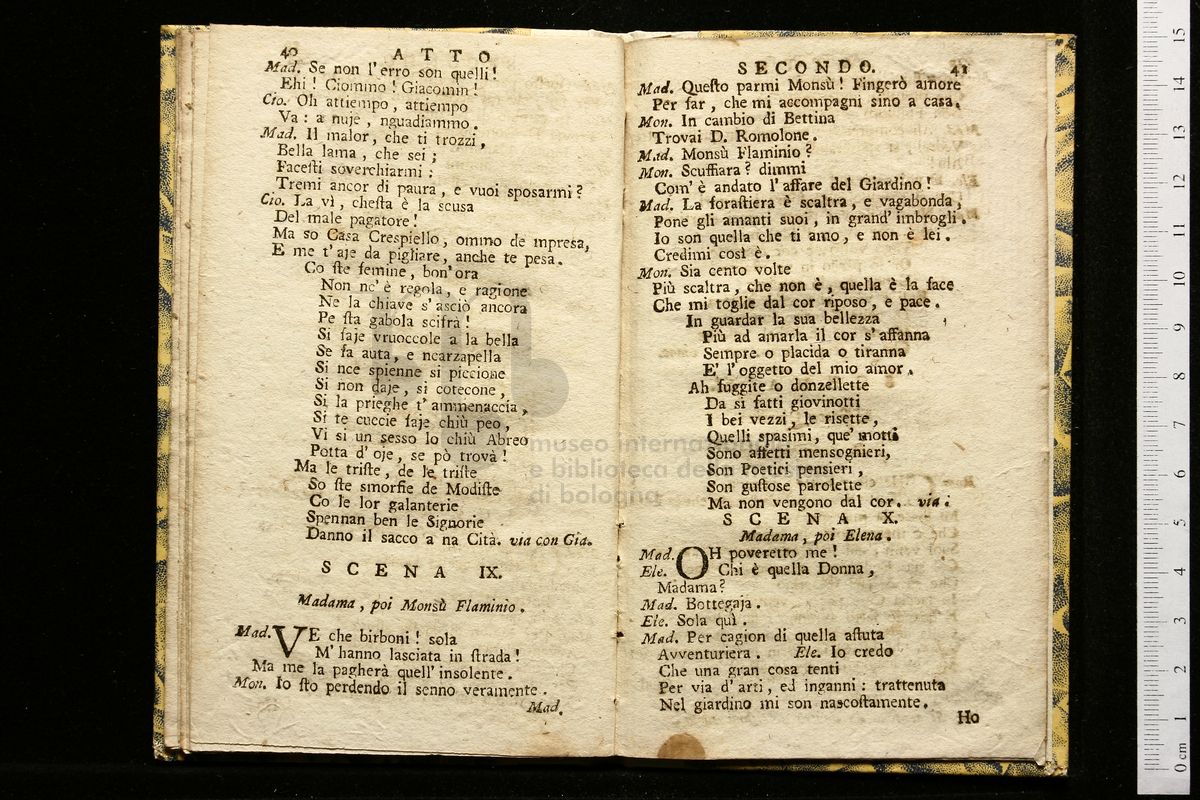 40 ATTO
Mad. Se non l'erro son quelli!
Ehi! Ciommo! Giacomin!
Cio. Oh attiempo, attiempo
Va: a nuje, nguadiammo.
Mad. Il malor, che ti trozzi,
Bella lama, che sei;
Facesti soverchiarmi:
Tremi ancor di paura, e vuoi sposarmi?
Cio. La vì, chesta è la scusa
Del male pagatore!
Ma so Casa Crespiello, ommo de mpresa,
E me t'aje da pigliare, anche te pesa.
Co ste femine, bon'ora
Non nc'è regola, e ragione
Ne la chiave s'asciò ancora
Pe sta gabola scifrà!
Si faje vruoccole a la bella
Se fa auta, e ncarzapella
Si nce spienne si piccione
Si non daje, si cotecone,
Si la prieghe t'ammenaccia,
Si te cuccie faje chiù peo,
Vi si un sesso lo chiù Abreo
Potta d'oje, se pò trovà!
Ma le triste, de le triste
So ste smorfie de Modiste
Co le lor galanterie
Spennan ben le Signorie
Danno il sacco a na Cità. via con Gia.
SCENA IX.
Madama, poi Monsù Flaminio.
Mad. VE che birboni! sola
M'hanno lasciata in strada!
Ma me la pagherà quell'insolente.
Mon. Io sto perdendo il senno veramente.
Mad.
SECONDO. 41
Mad. Questo parmi Monsù! Fingerò amore
Per far, che mi accompagni sino a casa.
Mon. In cambio di Bettina
Trovai D. Romolone.
Mad. Monsù Flaminio?
Mon. Scuffiara? dimmi
Com'è andato l'affare del Giardino!
Mad. La forastiera è scaltra, e vagabonda,
Pone gli amanti suoi, in grand'imbrogli.
Io son quella che ti amo, e non è lei.
Credimi così è.
Mon. Sia cento volte
Più scaltra, che non è, quella è la face
Che mi toglie dal cor riposo, e pace.
In guardar la sua bellezza
Più ad amarla il cor s'affanna
Sempre o placida o tiranna
E' l'oggetto del mio amor.
Ah fuggite o donzellette
Da si fatti giovinotti
I bei vezzi, le risette,
Quelli spasimi, que' motti
Sono affetti mensognieri,
Son Poetici pensieri,
Son gustose parolette
Ma non vengono dal cor. via.
SCENA X.
Madama, poi Elena.
Mad. OH poveretto me!
Ele. Chi è quella Donna,
Madama?
Mad. Bottegaja.
Ele. Sola quì.
Mad. Per cagion di quella astuta
Avventuriera. Ele. Io credo
Che una gran cosa tenti
Per via d'arti, ed inganni: trattenuta
Nel giardino mi son nascostamente.
Ho
museo internazionale
e biblioteca de
di bologna
0 cm 1 2 3 4 5 6 7 8 9 10 11 12 13 14 15